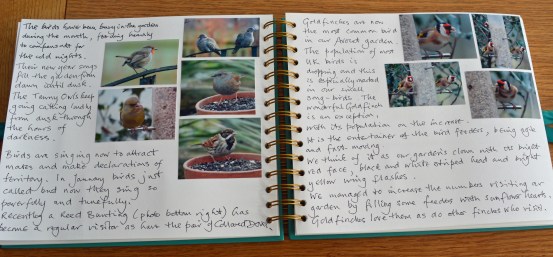 The birds have been busy in the garden
during the month, feeding keenly
to compensate for
the cold nights.
Their new year songs
fill the garden from
dawn until dusk.
The Tawny Owls keep
going calling loudly
from dusk through
the hours of
darkness.
Birds are singing now to attract
mates and make declarations of
territory. In January birds just
called but now they sing so
powerfully and tunefully.
Recently a Reed Bunting (photo bottom right) has
become a regular visitor as have the pair of Collared Doves.
Goldfinches are now
the most common bird
in our garden.
The population of most
UK birds is
dropping and this
is especially noted
in our small
song-birds. The
wonderful Goldfinch
is an exception,
with its population on the increase.
It is the entertainer of the bird feeders, being agile
and fast moving.
We think of it as our garden's clown with its bright
red face, black and white striped head and bright
yellow wing flashes.
We managed to increase the numbers visiting our
garden by filling some feeders with sunflower hearts.
Goldfinches love them as do other finches who visit.